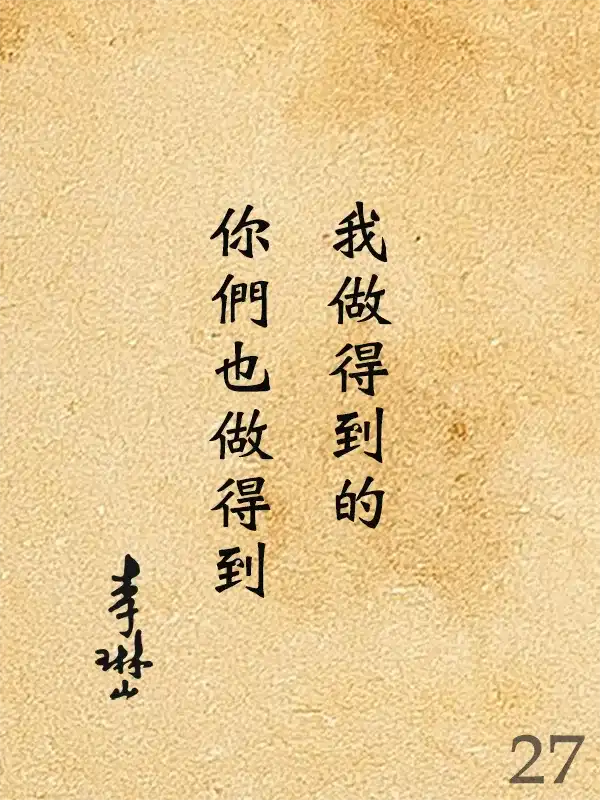 我做得到的
你們也做得到
李琳山
27